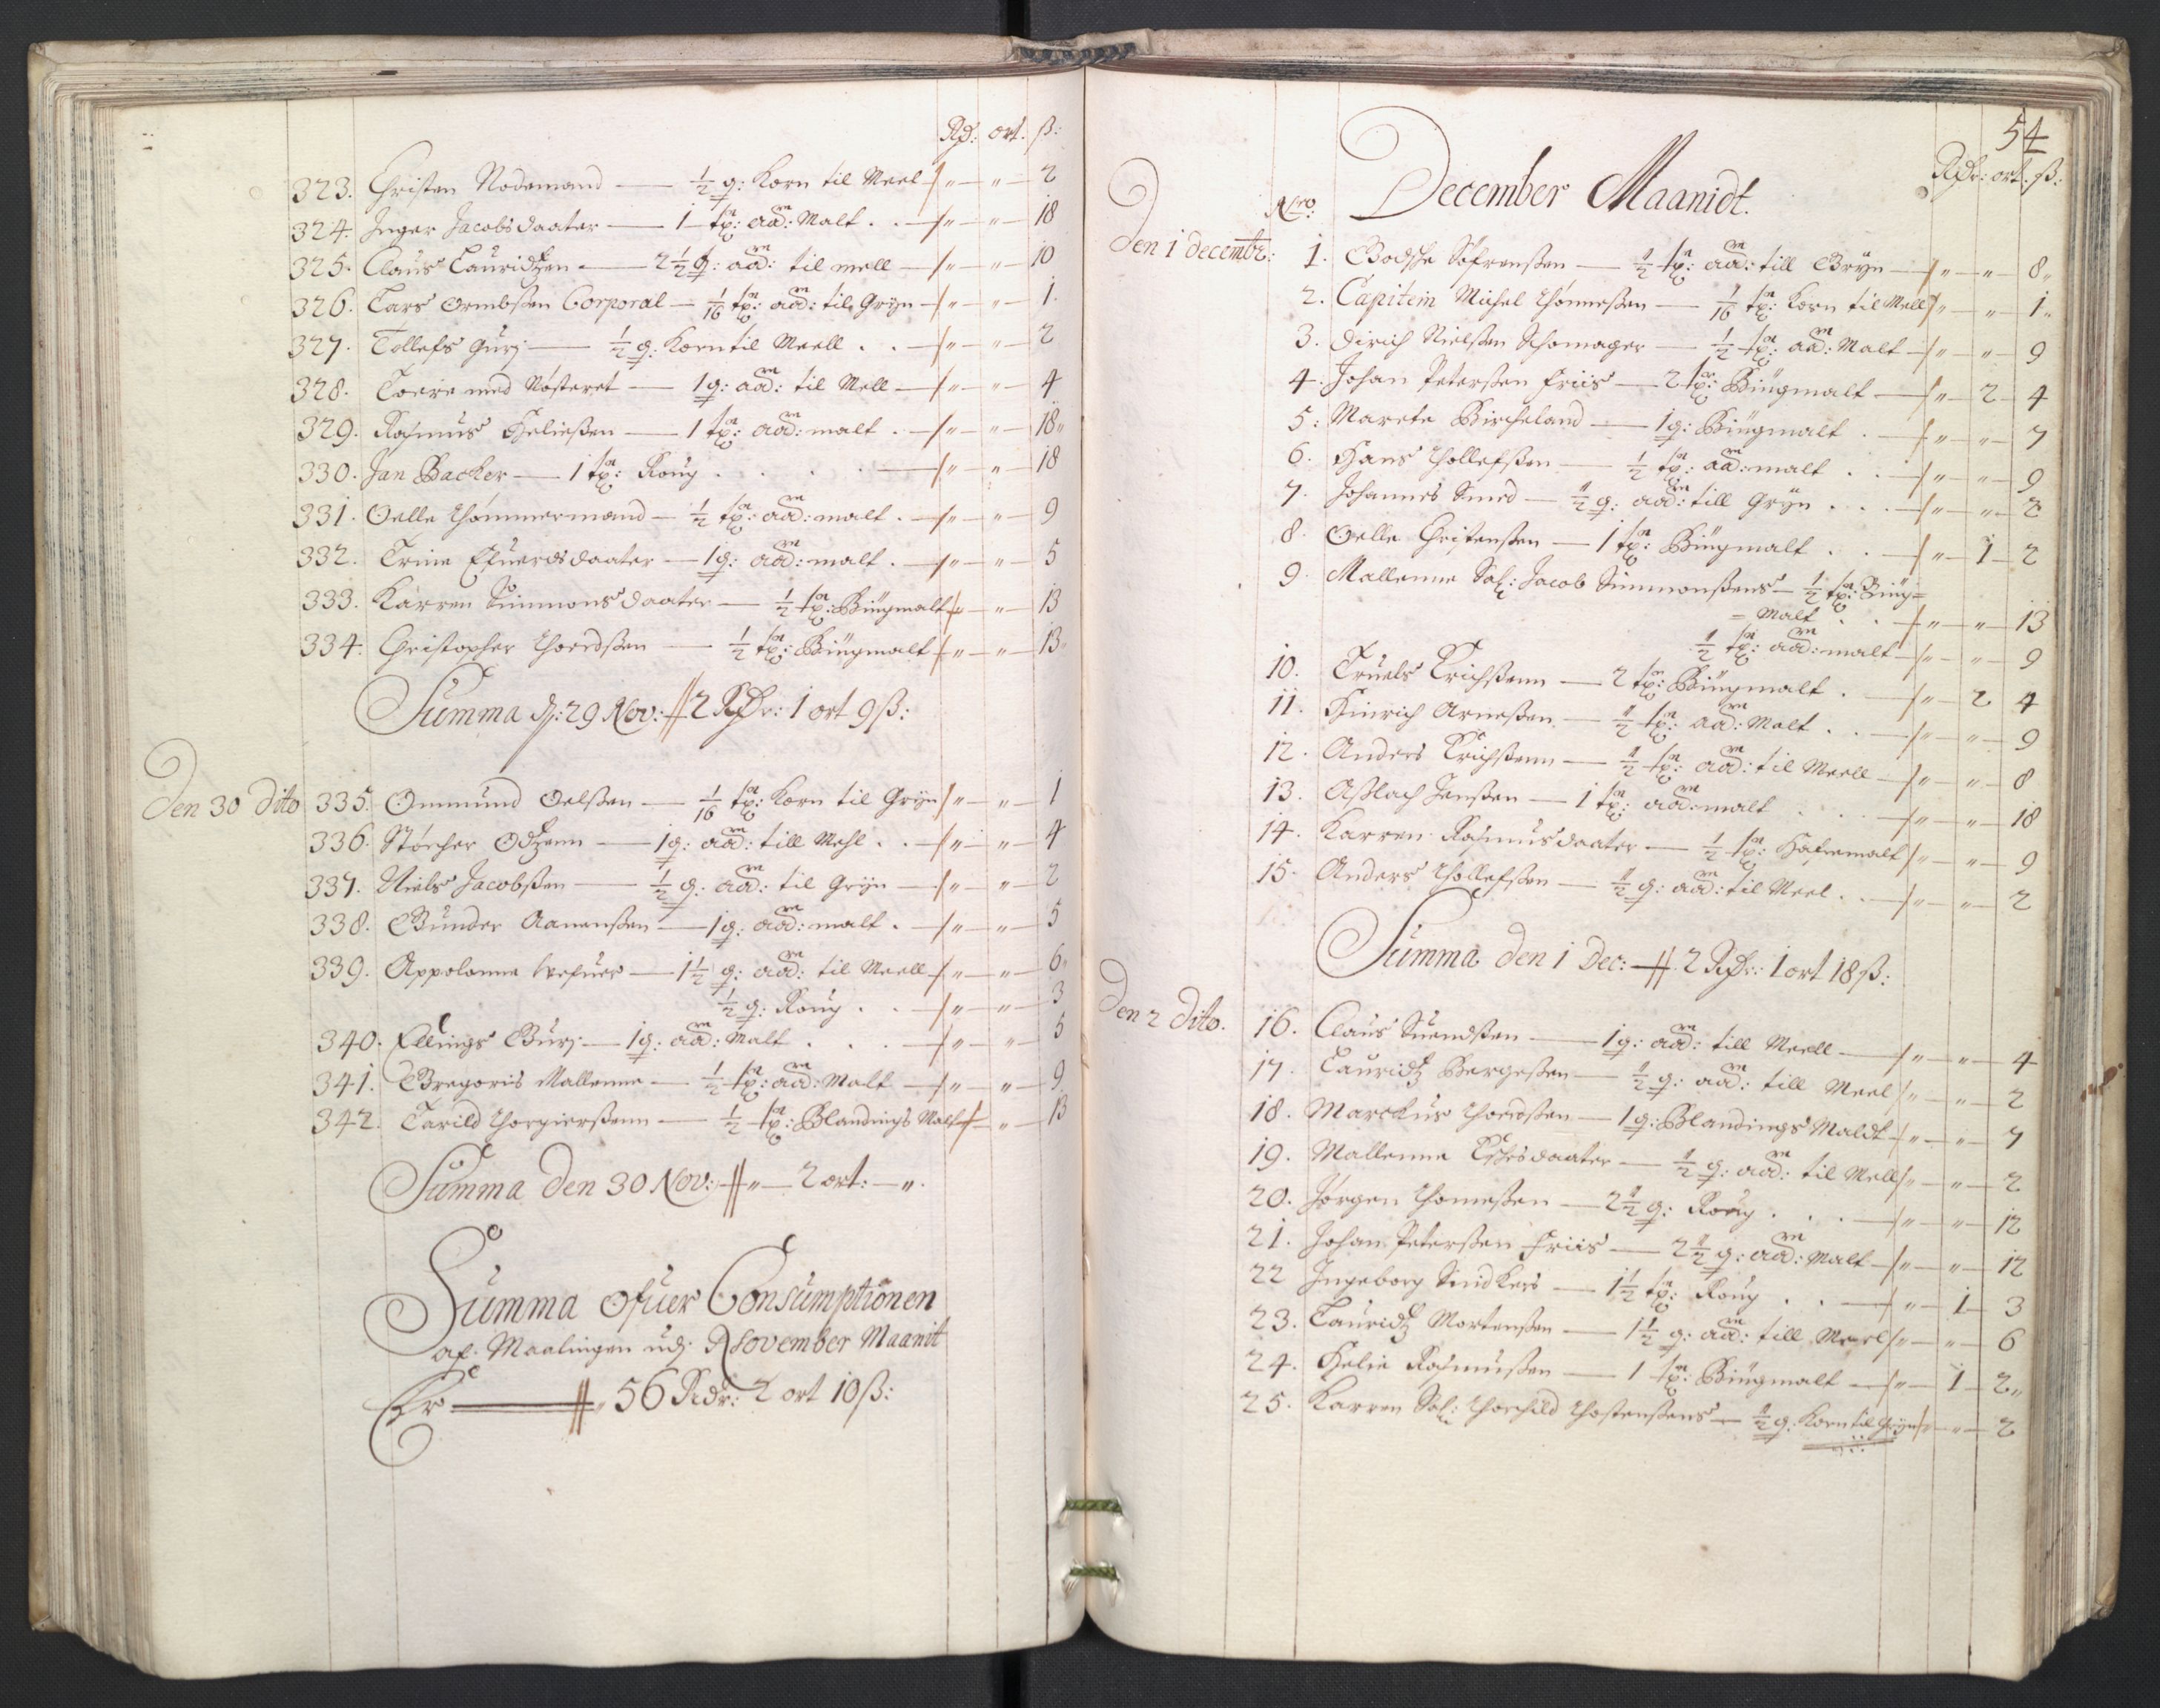 Rd: ort. ß:
323. Christen Rodemand — ½ q: Korn til Meel — " — " — 2
324. Inger Jacobsdaater — 1 tø: aad: Malt . . — " — " — 18
325. Claus Lauridtzen — 2½ q: aad: til mell — " — " — 10
326. Lars Ormbßen Corporal — 1/16 tø: aad: til Gryn — " — " — 1
327. Tollefs Gurj — ½ q: Korn til Meell . . — " — " — 2
328. Toere med Nøsteret — 1 q: aad: til Mell — " — " — 4
329. Rasmus Heließen — 1 tø: aad: malt . — " — " — 18
330. Jan Backer — 1 tø: Roug . . . . — " — " — 18
331. Oelle Thömmermand — ½ tø: aad: malt . — " — " — 9
332. Trine Efuerdsdaater — 1 q: aad: malt . — " — " — 5
333. Karren Simmonsdaater — ½ tø: Biugmalt — " — " — 13
334. Christopher Thoerdßen — ½ tø: Biugmalt — " — " — 13
Summa d: 29 Nov: 2 Rdr: 1 ort 9 ß:
Den 30 Dito 335. Ommund Oelßen — 1/16 tø: Korn til Gryn — " — " — 1
336. Størcher Odtzenn — 1 q: aad: till Mehl . . — " — " — 4
337. Niels Jacobßen — ½ q: aad: til Gryn — " — " — 2
338. Gunder Aanenßen — 1 q: aad: malt . — " — " — 5
339. Appolonne — 1½ q: aad: til Meell — " — " — 6
½ q: Roug . . — " — " — 3
340. Ellings Gurj — 1 q: aad: Malt . . . — " — " — 5
341. Gregoris Mallenne — ½ tø: aad: Malt — " — " — 9
342. Tarild Thorgierßenn — ½ tø: Blandings Malt — " — 13
Summa Den 30 Nov: " — 2 ort: — ".
Summa Ofuer Consumptionen
af Maalingen udj November Maanit
Er — 56 Rdr: 2 ort 10 ß:
54
Rdr: ort: ß:
December Maanidt.
Nro:
Den 1 decembr: 1. Godsche Søfrenßen — ½ tø: aad: till Gryn — " — " — 8
2. Capitein Michel Thönneßen — 1/16 tø: Korn til Mell — " — " — 1
3. Dirich Nielßen Schomager — ½ tø: aad: Malt — " — " — 9
4. Johan Peterßen Friis — 2 tø: Biugmalt — " — 2 — 4
5. Marete Bircheland — 1 q: Biugmalt . — " — " — 7
6. Hans Thollefßen — ½ tø: aad: malt . . — " — " — 9
7. Johannes Smed — ½ q: aad: till Gryn . . . — " — " — 2
8. Oelle Christenßen — 1 tø: Biugmalt . . — " — 1 — 2
9. Mallenne Sal: Jacob Simmonßens — ½ tø: Biug=
= Malt . . — " — " — 13
½ tø: aad: malt — " — " — 9
10. Truels Erichßenn — 2 tø: Biugmalt . — " — 2 4
11. Hinrich Arneßen — ½ tø: aad: Malt . . — " — " — 9
12. Anders Erichßenn — ½ tø: aad: til Meell — " — " — 8
13. Aßlach Jenßen — 1 tø: aad: malt . . . — " — " — 18
14. Karren Rasmusdaater — ½ tø: Hafremalt — " — " — 9
15. Anders Thollefßen — ½ q: aad: til Meel . . — " — " — 2
Summa den 1 Dec: — 2 Rdr: 1 ort 18 ß:
Den 2 Dito. 16. Claus Suendßen — 1 q: aad: till Meell — " — " — 4
17. Lauridtz Bergeßen — ½ q: aad: till Meel — " — " — 2
18. Marckus Thoerdßen — 1 q: Blandings Maldt — " — " — 7
19. Mallenne — ½ q: aad: til Mell — " — " — 2
20. Jörgen Thomeßen — 2½ q: Roug . . . — " — " — 12
21. Johan Peterßen Friis — 2½ q: aad: Malt — " — " — 12
22 Ingeborg Snidkers — 1½ tø: Roug . . — " — 1 — 3
23. Lauridtz Mortenßen — 1½ q: aad: till Meel — " — " — 6
24. Helie Rasmußen — 1 tø: Biugmalt — " — 1 — 2
25. Karren Sal: Thorchild Thostenßens — ½ q: Korn til Gryn — " — " — 2